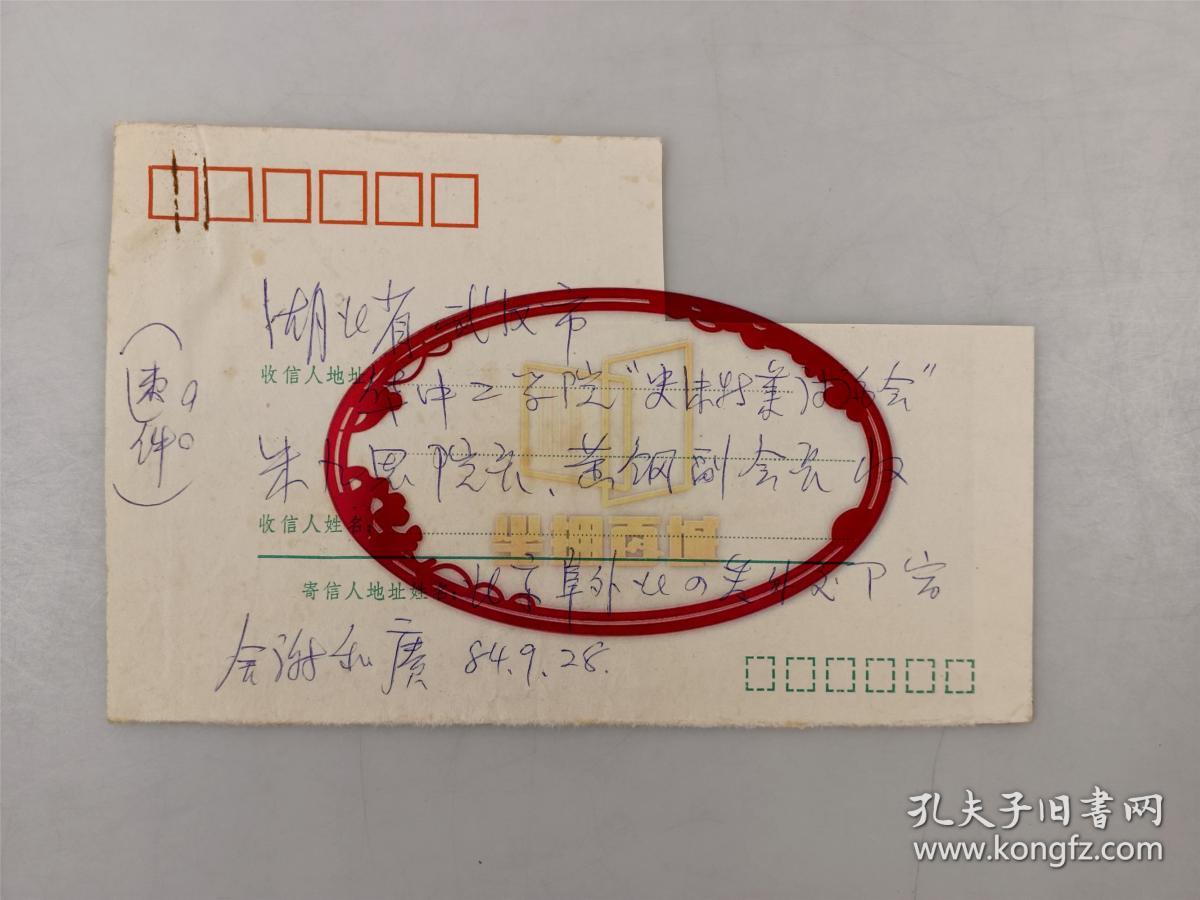 湖北省武汉市
(速件)
收信人地址:
华中工学院“史沫特莱研究会”
朱九思院长、黄钢副会长收
收信人姓名:
寄信人地址姓名:北京阜外北
会谢和赓 84.9.28.
孔夫子旧书网
www.kongfz.com